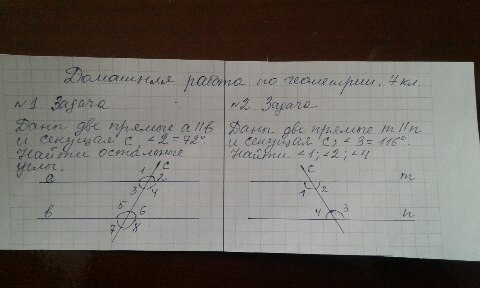 Домашняя работа по геометрии. 7 кл.
№1 Задача
Даны две прямые a||b
и секущая c, ∠2=72°.
Найти остальные
углы.
c
a 1 2
3 4
b 5 6
7 8
№2 Задача
Даны две прямые m||n
и секущая c, ∠3=116°.
Найти ∠1; ∠2; ∠4
c
1 2 m
4 3 n